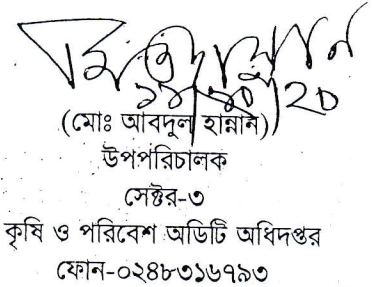 (মোঃ আবদুল হান্নান)
উপপরিচালক
সেক্টর-৩
কৃষি ও পরিবেশ অডিটি অধিদপ্তর
ফোন-০২৪৮৩১৬৭৯৩